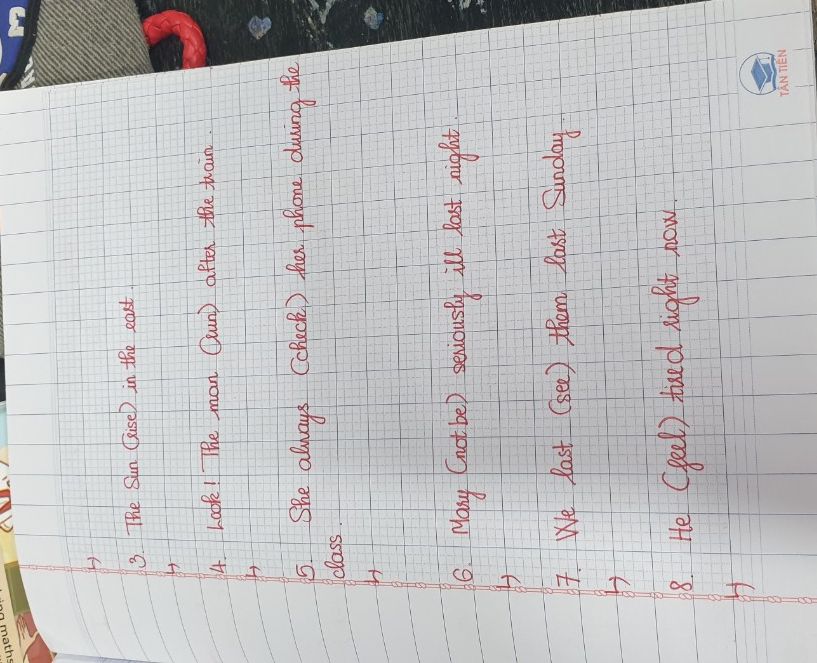 ↳
3. The Sun (rise) in the east.
↳
4. Look! The man (run) after the train.
↳
5. She always (check) her phone during the
class.
↳
6. Mary (not be) seriously ill last night.
↳
7. We last (see) them last Sunday.
↳
8. He (feel) tired right now.
↳
TÂN TIẾN